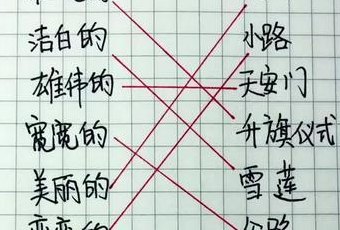 洁白的 小路
雄伟的 天安门
宽宽的 升旗仪式
美丽的 雪莲
弯弯的 公路